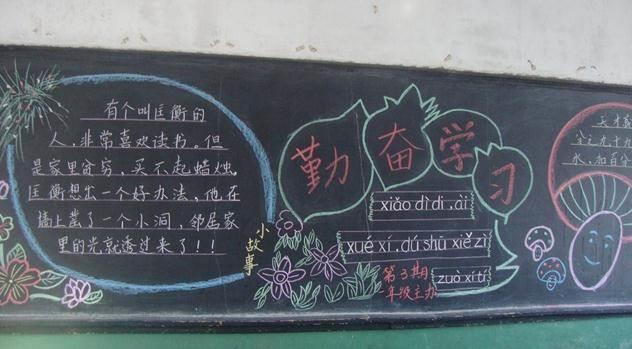 有个叫匡衡的
人,非常喜欢读书。但
是家里贫穷,买不起蜡烛。
匡衡想出一个好办法,他在
墙上凿了一个小洞,邻居家
里的光就透过来了!!
小故事
勤奋学习
xiǎo dì di .ài
xué xí .dú shū xiě zì
zuò xí tí
第3期
年级主办
天才
分之九十九
水,和百分